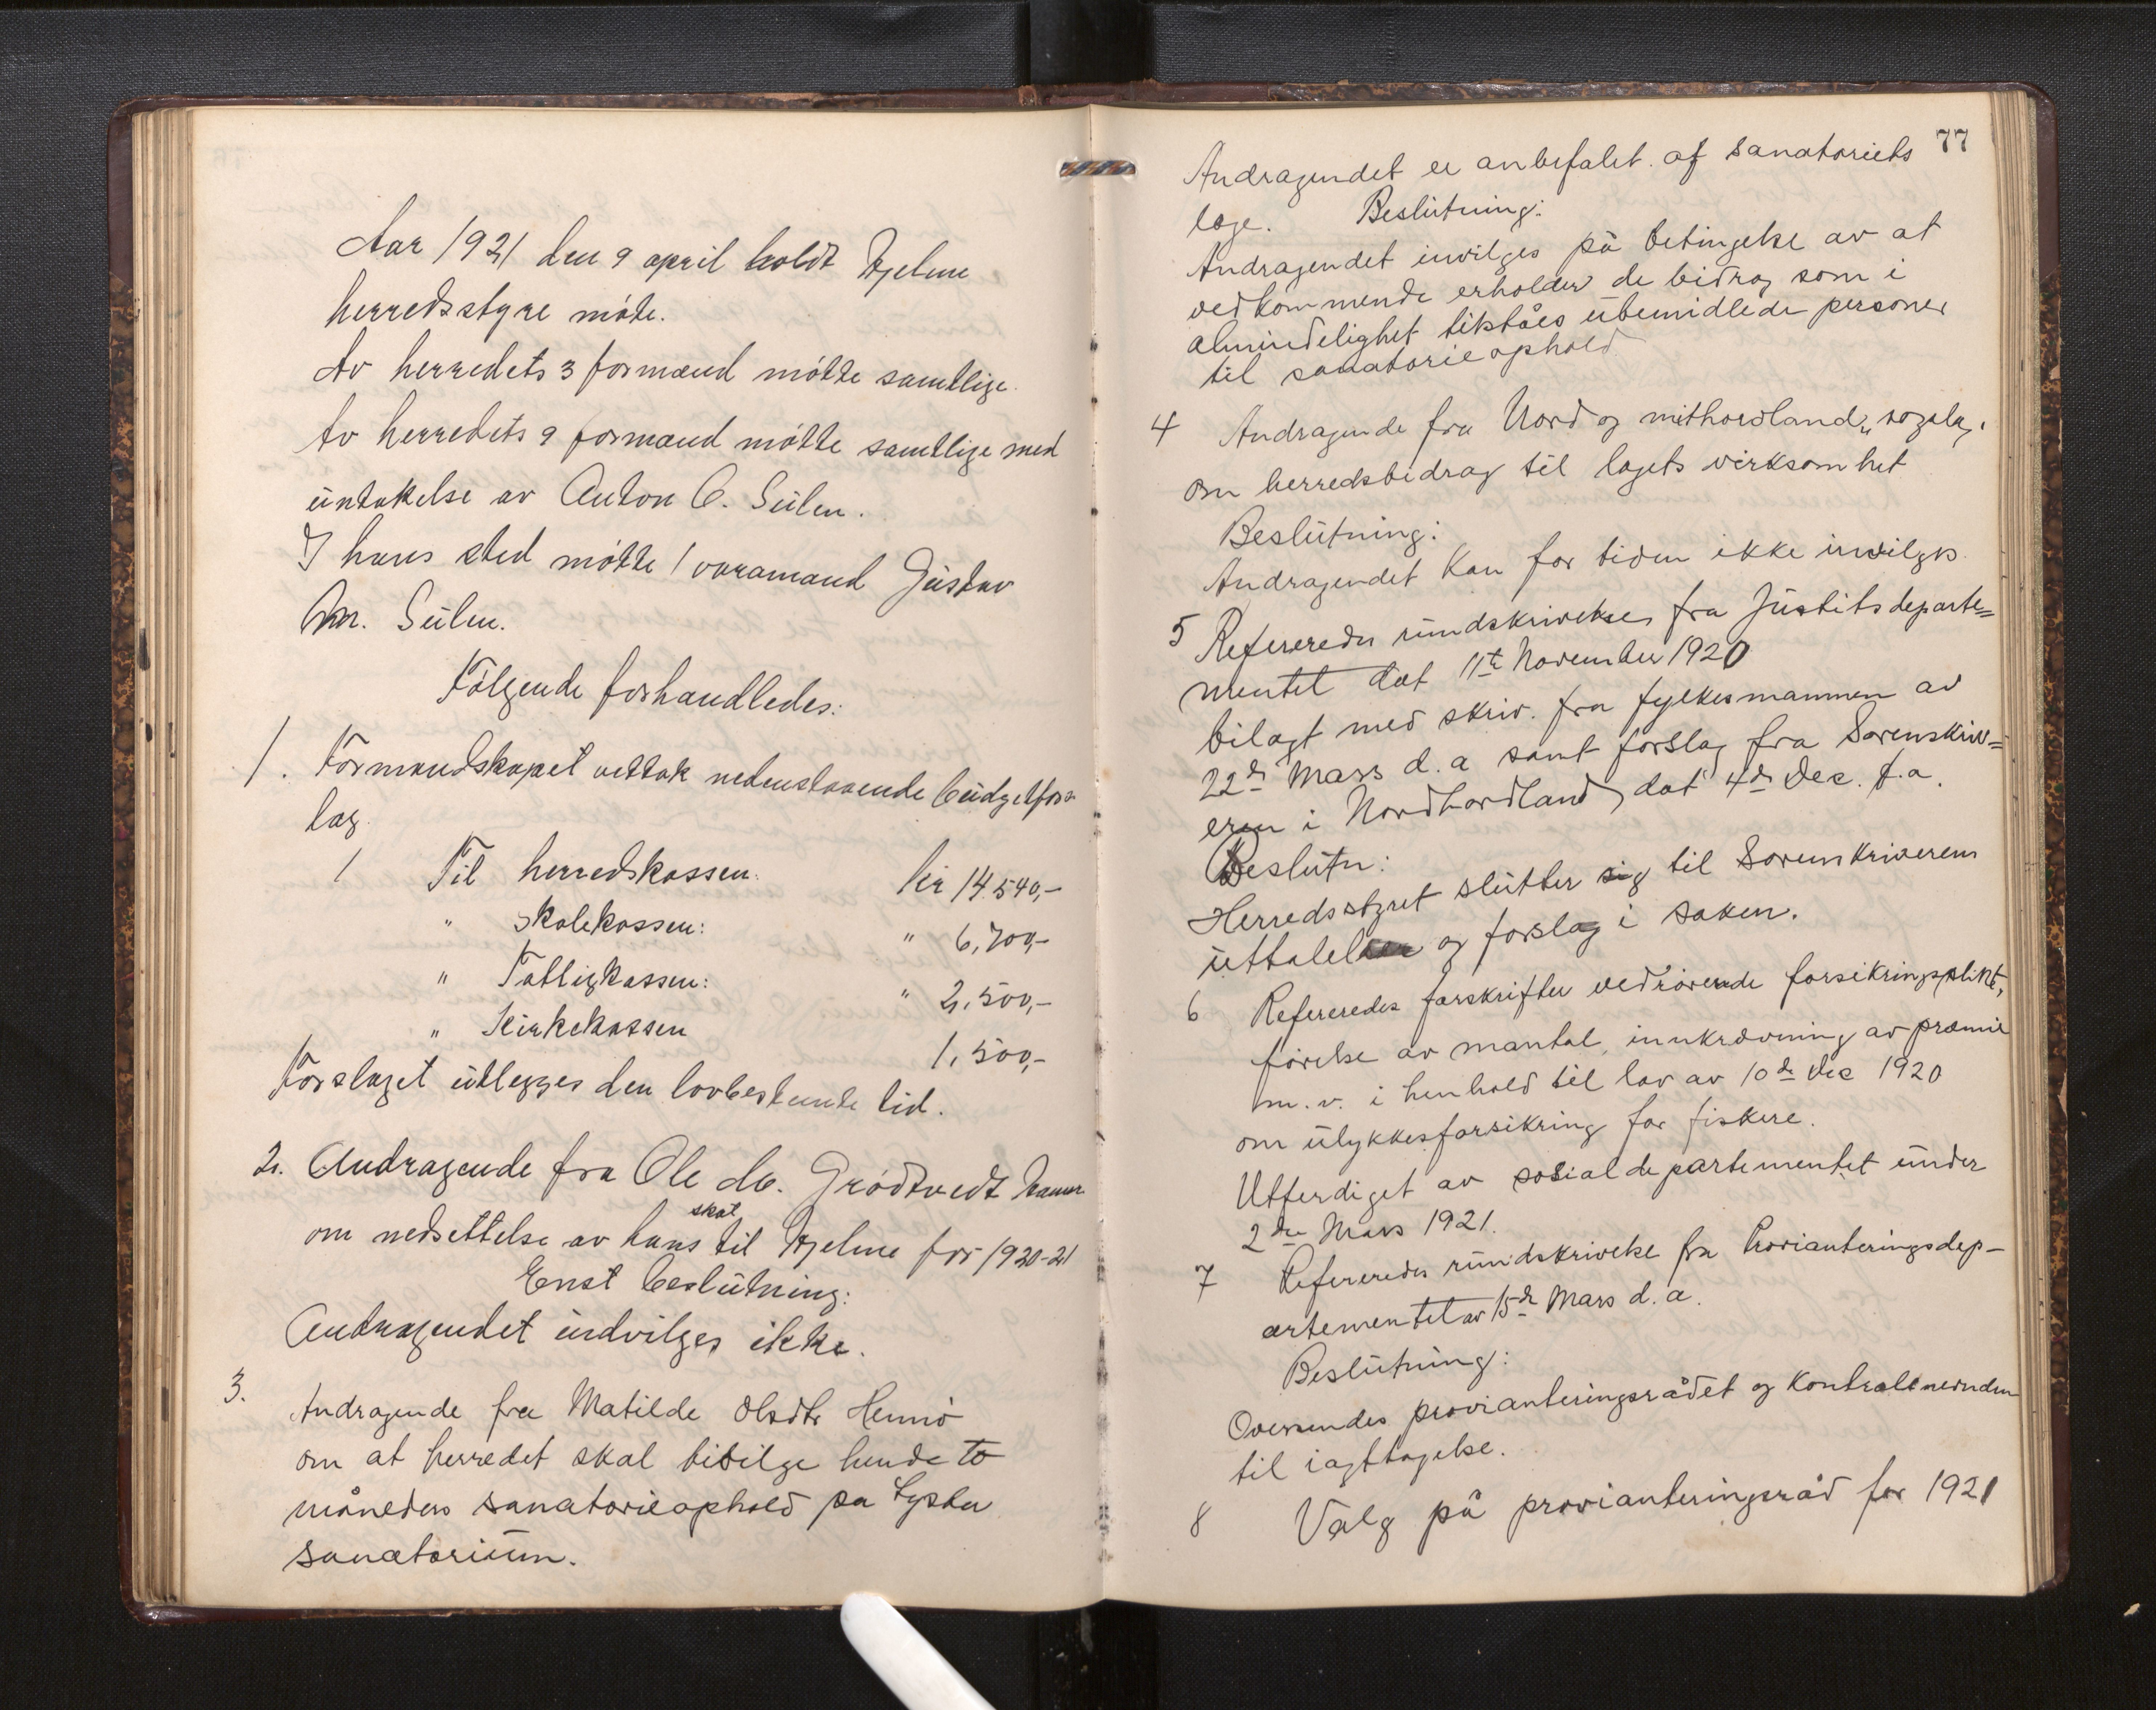 Aar 1921 den 9 april holdt Hjelme
herredsstyre möte.
Av herredets 3 formænd mötte samtlige.
Av herredets 9 formænd mötte samtlige med
untakelse av Anton O. Sulen.
I hans sted mötte 1 varamand Gustav
M. Sulen.
Følgende forhandledes:
1. Formandskapet vettok nedenstaaende budgetfors-
lag.
1 Til herredskassen: kr 14.540,-
" skolekassen: " 6,700,-
" Fattigkassen: " 2,500,-
" Kirkekassen 1,500,-
Forslaget utlegges den lovbestemte tid.
2. Andragende fra Ole M. Grødtvedt
skat
om nedsettelse av hans til Hjelme for 1920-21
Enst beslutning:
Andragendet indvilges ikke.
3.
Andragende fra Matilde Olsdtr Hernö
om at herredet skal bivilge hende to
måneders sanatorieophold på Lyster
sanatorium.
77
Andragendet er anbefalet af sanatoriets
læge. Beslutning:
Andragendet invilges på betingelse av at
vedkommende erholder de bidrag som i
almindelighet tilståes ubemidlede personer
til sanatorieophold
4 Andragende fra Nord og mithordland,,sogelag"
om herredsbidrag til lagets virksomhet
Beslutning:
Andragendet kan for tiden ikke invilges.
5 Refereredes rundskrivelse fra Justitsdeparte=
mentet dat 11te November 1920
bilagt med skriv. fra fylkesmannen av
22de Mars d.a samt forslag fra Sorenskriv=
eren i Nordhordland dat 4de Dec. f.a.
Beslutn:
Herredsstyret slutter sig til Sorenskriverens
uttalelse og forslag i saken.
6 Refereredes forskrifter vedrörende forsikringsplikt,
förelse av mantal, innkrævning av præmie
m.v. i henhold til lov av 10de Dec 1920
om ulykkesforsikring for fiskere.
Utferdiget av sosialdepartementet under
2den Mars 1921.
7 Refereredes rundskrivelse fra Provianteringsdep-
artementet av 15de Mars d.a.
Beslutning:
Oversendes provianteringsrådet og Kontrollnevnden
til iagttagelse.
8 Valg på provianteringsråd for 1921